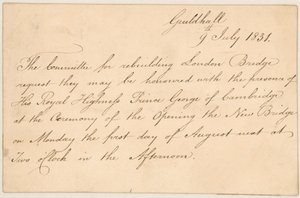 Guildhall
9th July 1831.
The Committee for rebuilding London Bridge
request they may be honored with the presence of
His Royal Highness Prince George of Cambridge
at the Ceremony of the Opening the New Bridge
on Monday the first day of August next at
Two o'Clock in the Afternoon.